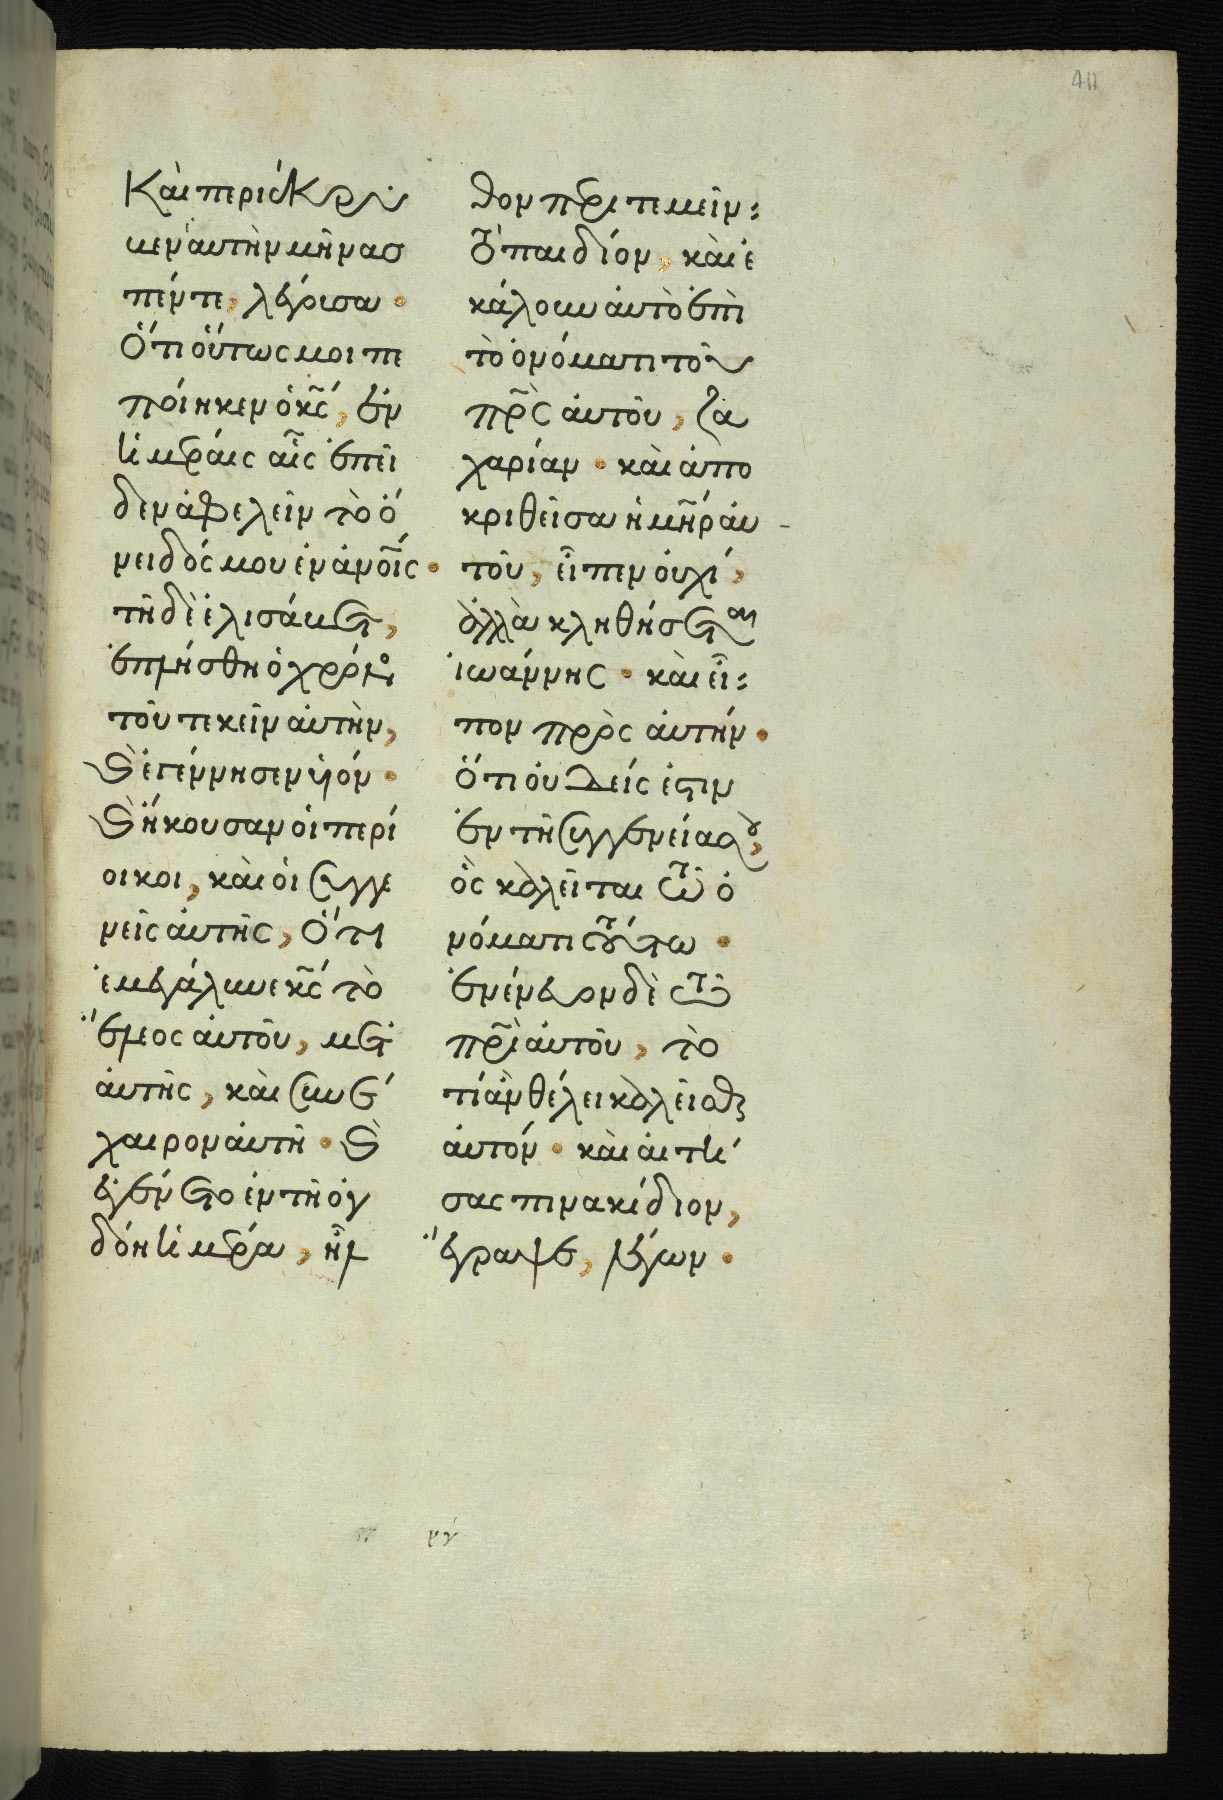 411
Καὶ περιέκρυ
βεν αὐτὴν μῆνας
πέντε, λέγουσα·
Ὅτι οὕτως μοι πε
ποίηκεν ὁ κς, ἐν
ἡμέραις αἷς ἐπεῖ
δεν ἀφελεῖν τὸ ὄ
νειδός μου ἐν ἀνοις·
τῆ δὲ ἐλισάβετ,
ἐπλήσθη ὁ χρόνος
τοῦ τεκεῖν αὐτὴν,
καὶ ἐγέννησεν υἱόν·
καὶ ἤκουσαν οἱ περί
οικοι, καὶ οἱ συγγε
νεῖς αὐτῆς, Ὅτι
ἐμεγάλυνε κς τὸ
ἔλεος αὐτοῦ, μετ
αὐτῆς, καὶ συνέ
χαιρον αὐτῆ· καὶ
ἐγένετο ἐν τῆ ὀγ
δόη ἡμέρα, ἦλ
θον περιτεμεῖν
τὸ παιδίον, καὶ ἐ
κάλουν αὐτὸ ἐπὶ
τὸ ὀνόματι τοῦ
πρς αὐτοῦ, ζα
χαρίαν· καὶ ἀπο
κριθεῖσα ἡ μηρ αὐ
τοῦ, εἶπεν οὐχί,
ἀλλὰ κληθήσεται
ἰωάννης· καὶ εἶ
πον πρὸς αὐτήν·
Ὅτι οὐδείς ἐστιν
ἐν τῆ συγγενεία σου,
ὃς καλεῖται τῶ ὀ
νόματι τούτω·
ἐνένευον δὲ τῶ
πρι αὐτοῦ, τὸ
τί ἂν θέλει καλεῖσθαι
αὐτόν· καὶ αἰτή
σας πινακίδιον,
ἔγραψε, λέγων·
νγ